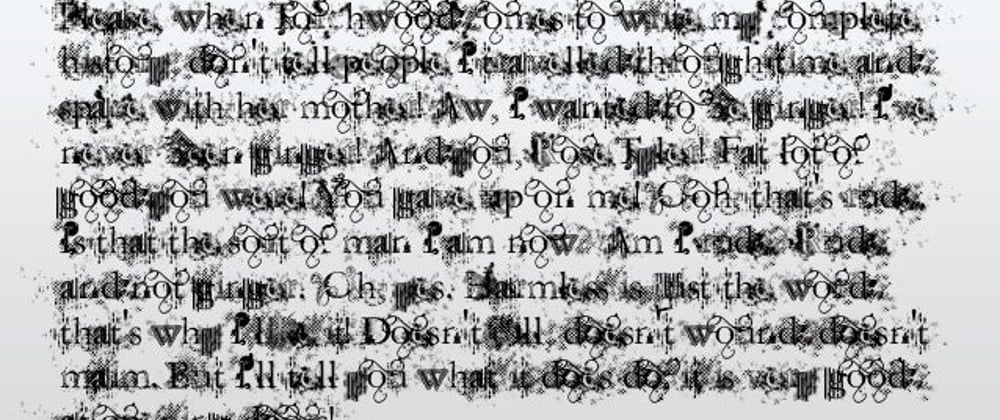 Please, when Torchwood comes to write my complete
history, don't tell people I travelled through time and
space with her mother! Aw, I wanted to be ginger! I've
never been ginger! And you, Rose Tyler! Fat lot of
good you were! You gave up on me! Ooh, that's rude.
Is that the sort of man I am now? Am I rude? Rude
and not ginger. Oh, yes. Harmless is just the word:
that's why I like it! Doesn't kill, doesn't wound, doesn't
maim. But I'll tell you what it does do, it is very good